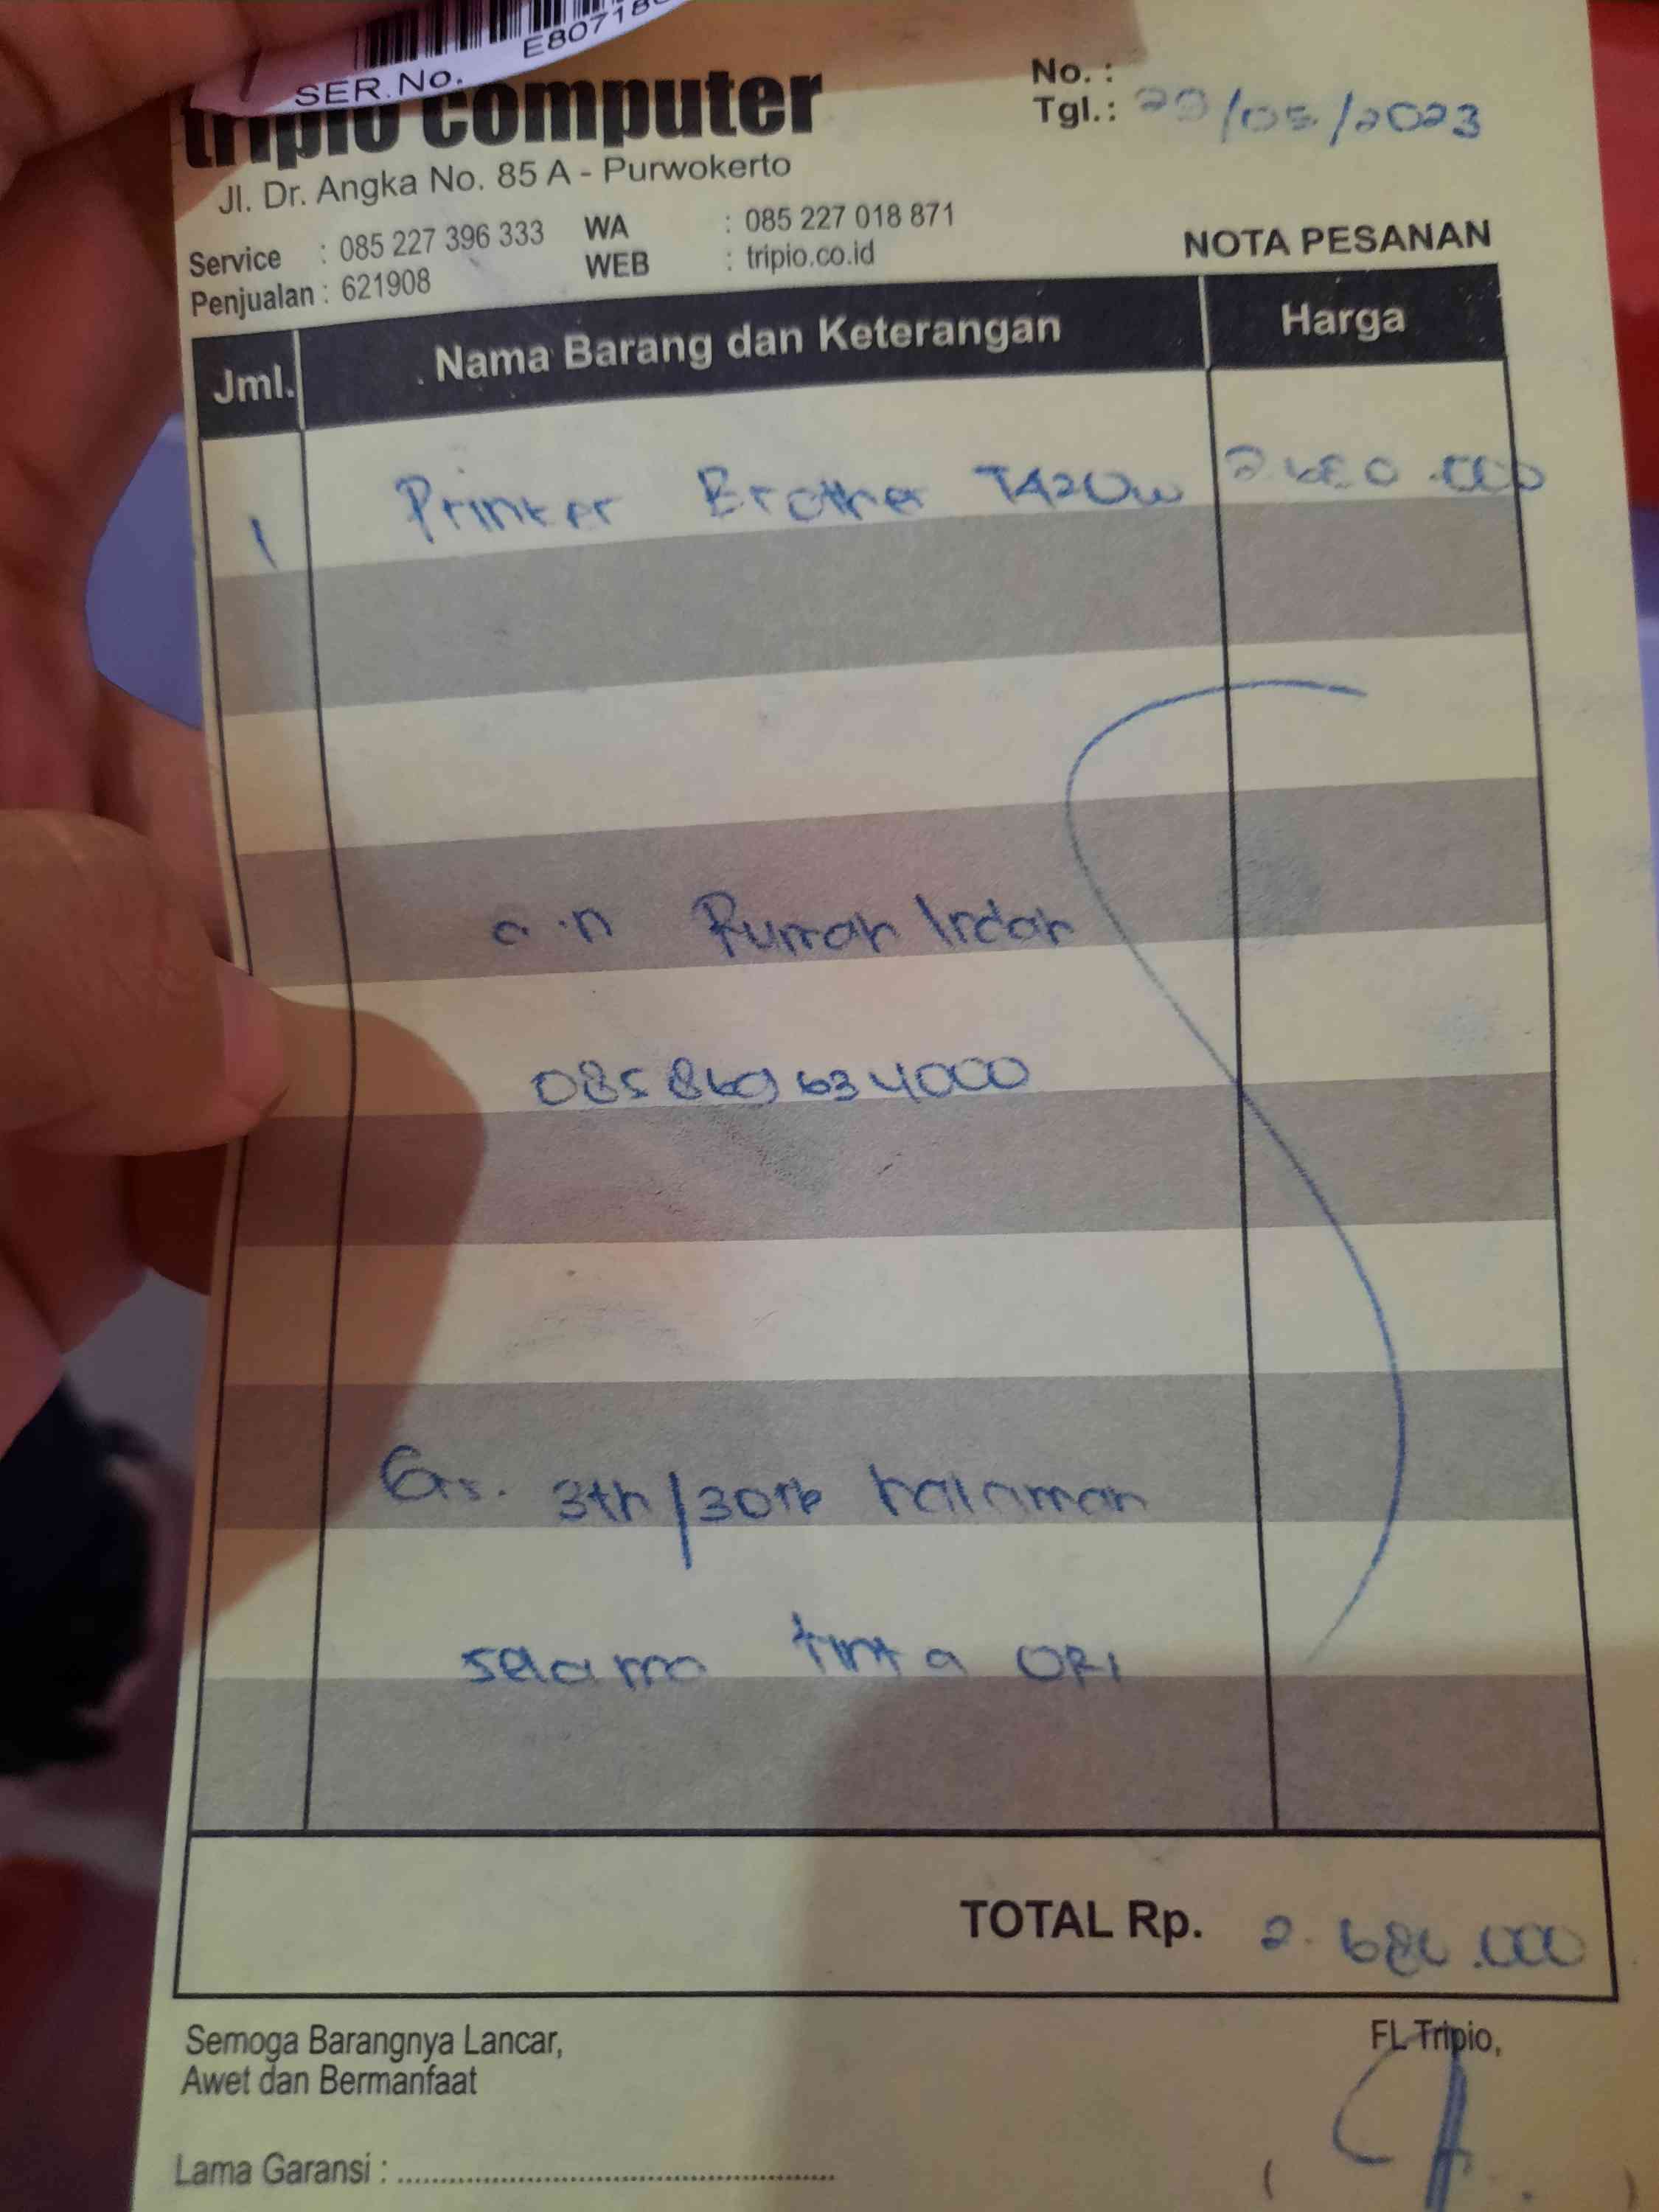 E80718
SER.No.
tripio computer
Jl. Dr. Angka No. 85 A - Purwokerto
Service : 085 227 396 333 WA : 085 227 018 871
Penjualan : 621908 WEB : tripio.co.id
No. :
Tgl.: 29/05/2023
NOTA PESANAN
Jml. Nama Barang dan Keterangan Harga
1 Printer Brother T420w 2.680.000
a.n Rumah Indah
085869634000
Grs. 3th/30rb halaman
selama tinta ORI
TOTAL Rp. 2.680.000
Semoga Barangnya Lancar,
Awet dan Bermanfaat
FL Tripio,
Lama Garansi :